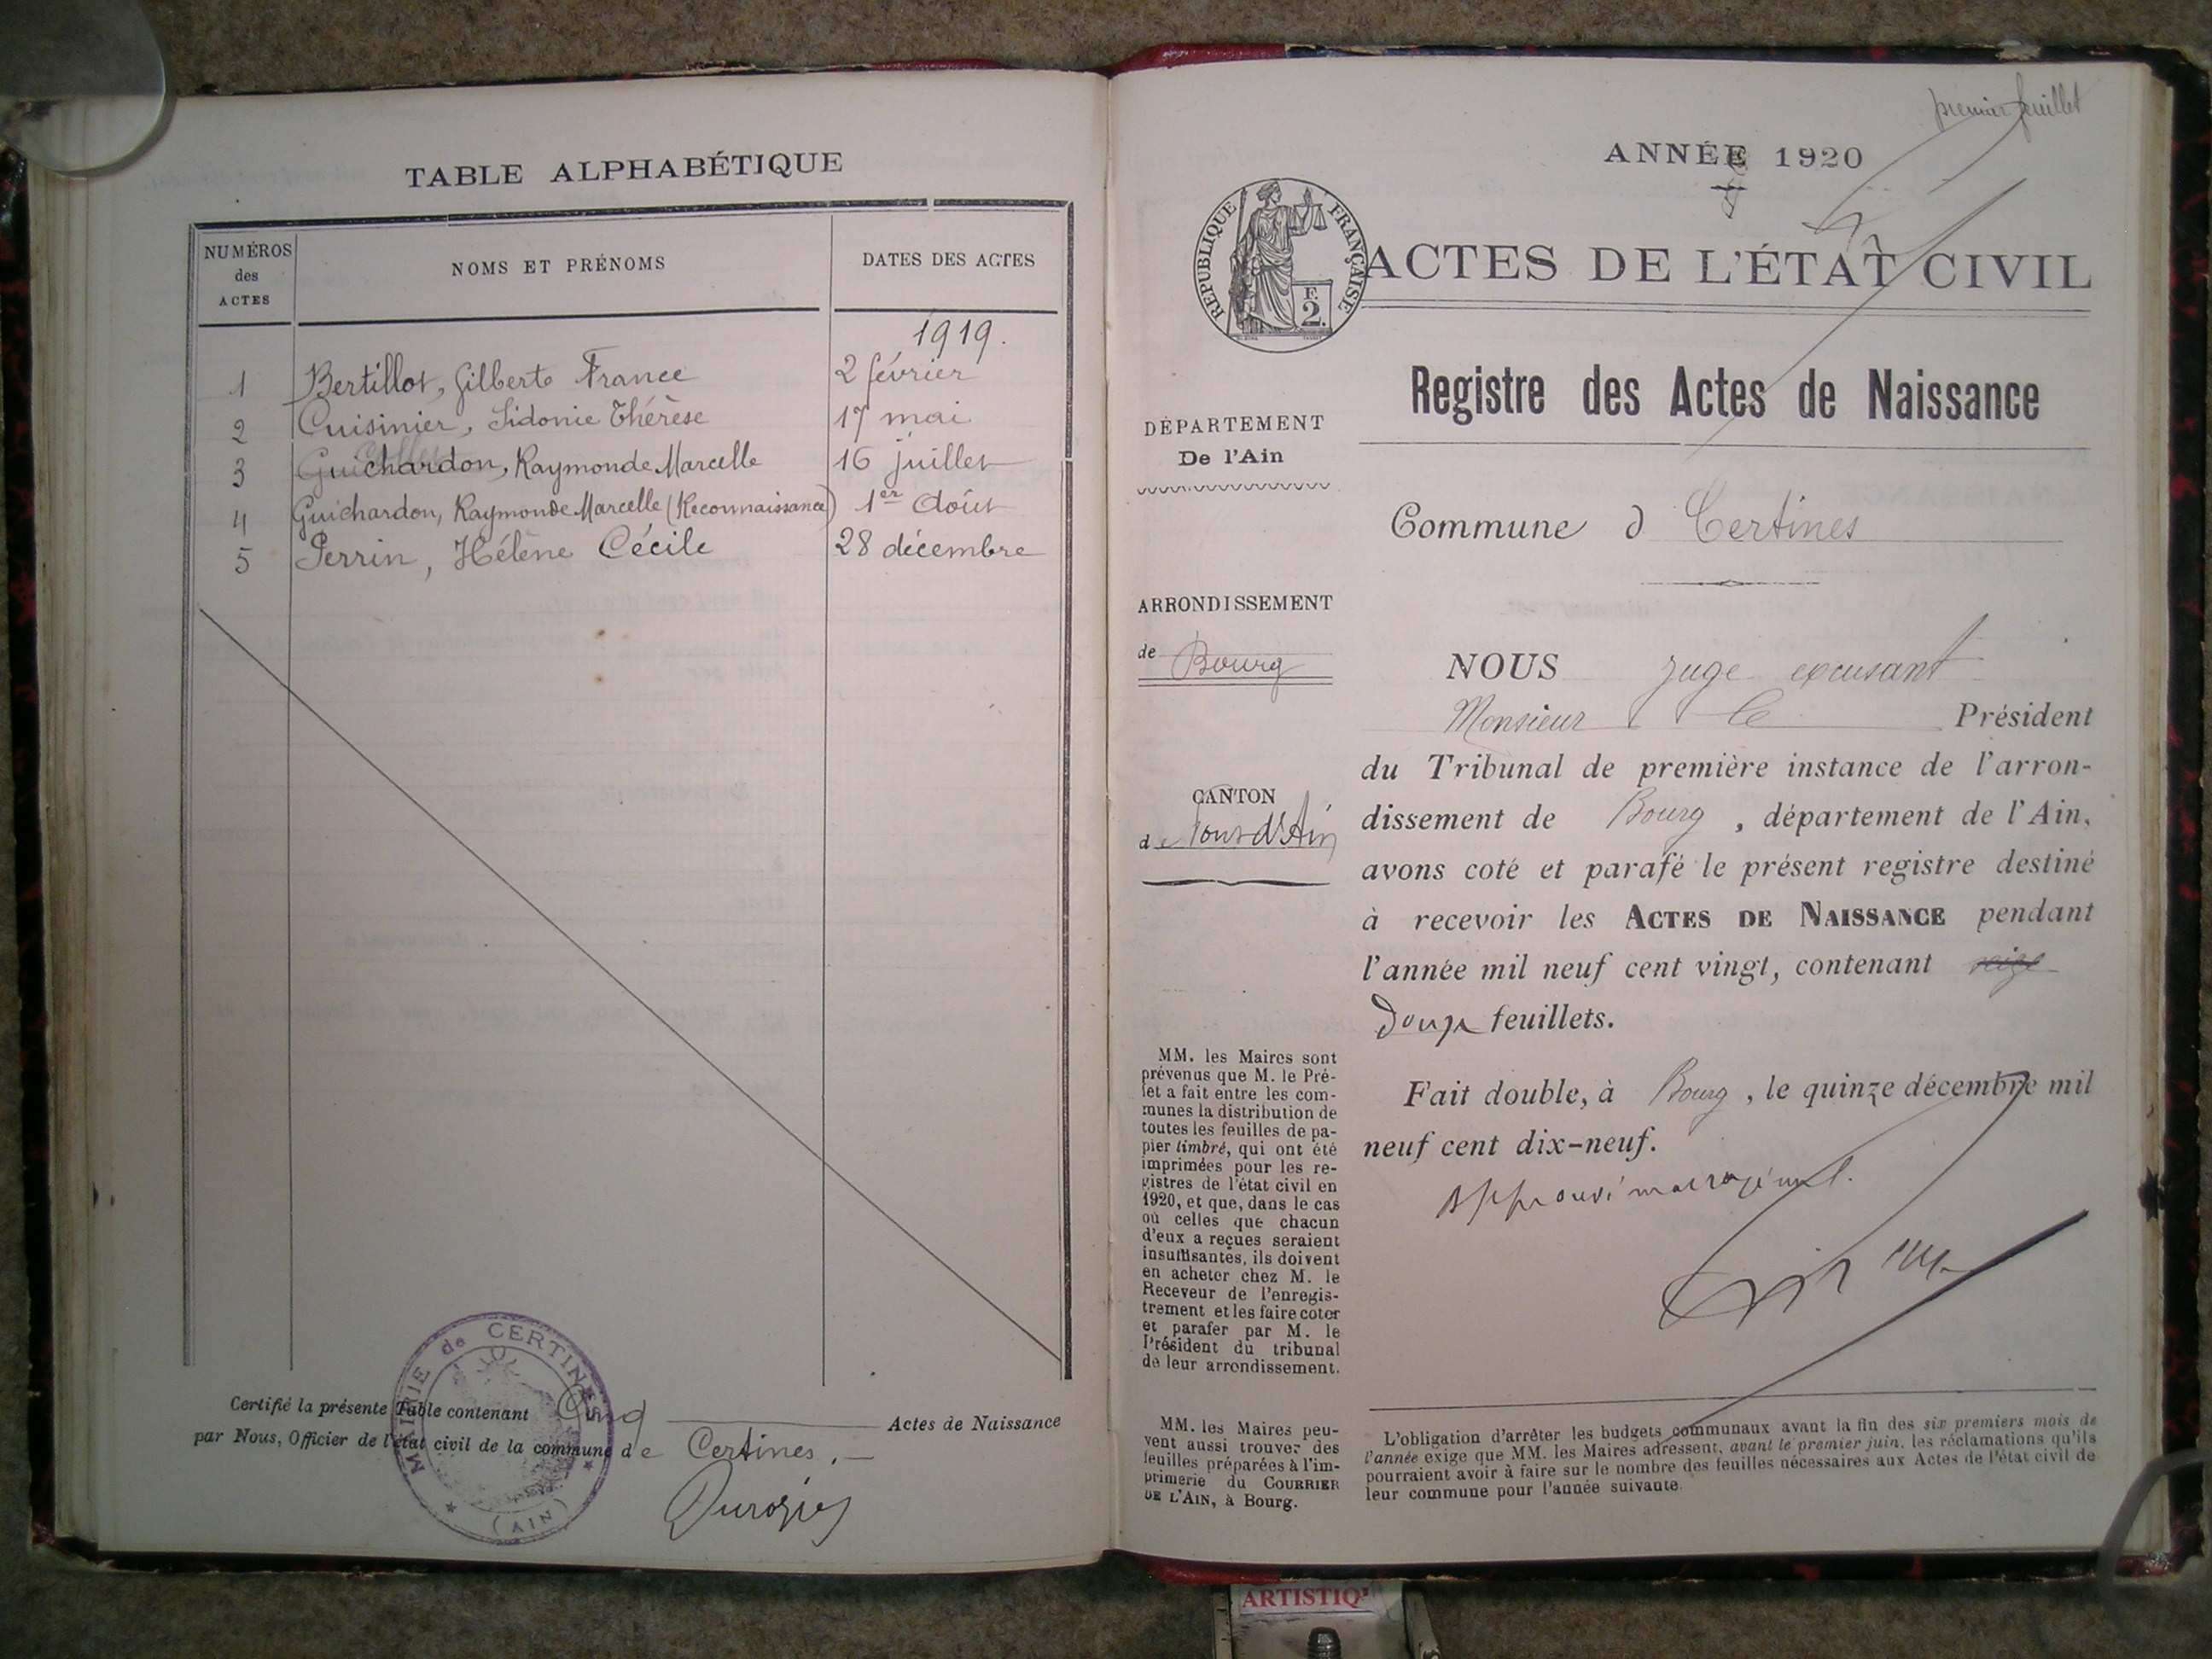 TABLE ALPHABÉTIQUE
NUMÉROS
des
ACTES
NOMS ET PRÉNOMS
DATES DES ACTES
1919.
1 Bertillot, Gilberte France 2 février
2 Cuisinier, Sidonie Thérèse 17 mai
3 Guichardon, Raymonde Marcelle 16 juillet
4 Guichardon, Raymonde Marcelle (Reconnaissance) 1er Août
5 Perrin, Hélène Cécile 28 décembre
Certifié la présente Table contenant Cinq Actes de Naissance
par Nous, Officier de l'état civil de la commune de Certines.
MAIRIE de CERTINES
(AIN)
premier feuillet
ANNÉE 1920
RÉPUBLIQUE FRANÇAISE
F.
2.
ACTES DE L'ÉTAT CIVIL
Registre des Actes de Naissance
DÉPARTEMENT
De l'Ain
Commune d Certines
ARRONDISSEMENT
de Bourg
CANTON
de Pont d'Ain
NOUS juge excusant
Monsieur le Président
du Tribunal de première instance de l'arron-
dissement de Bourg, département de l'Ain,
avons coté et parafé le présent registre destiné
à recevoir les ACTES DE NAISSANCE pendant
l'année mil neuf cent vingt, contenant seize
Douze feuillets.
Fait double, à Bourg, le quinze décembre mil
neuf cent dix-neuf.
MM. les Maires sont
prévenus que M. le Pré-
fet a fait entre les com-
munes la distribution de
toutes les feuilles de pa-
pier timbré, qui ont été
imprimées pour les re-
gistres de l'état civil en
1920, et que, dans le cas
où celles que chacun
d'eux a reçues seraient
insuffisantes, ils doivent
en acheter chez M. le
Receveur de l'enregis-
trement et les faire coter
et parafer par M. le
Président du tribunal
de leur arrondissement.
MM. les Maires peu-
vent aussi trouver des
feuilles préparées à l'im-
primerie du COURRIER
DE L'AIN, à Bourg.
L'obligation d'arrêter les budgets communaux avant la fin des six premiers mois de
l'année exige que MM. les Maires adressent, avant le premier juin, les réclamations qu'ils
pourraient avoir à faire sur le nombre des feuilles nécessaires aux Actes de l'état civil de
leur commune pour l'année suivante.
ARTISTIQ